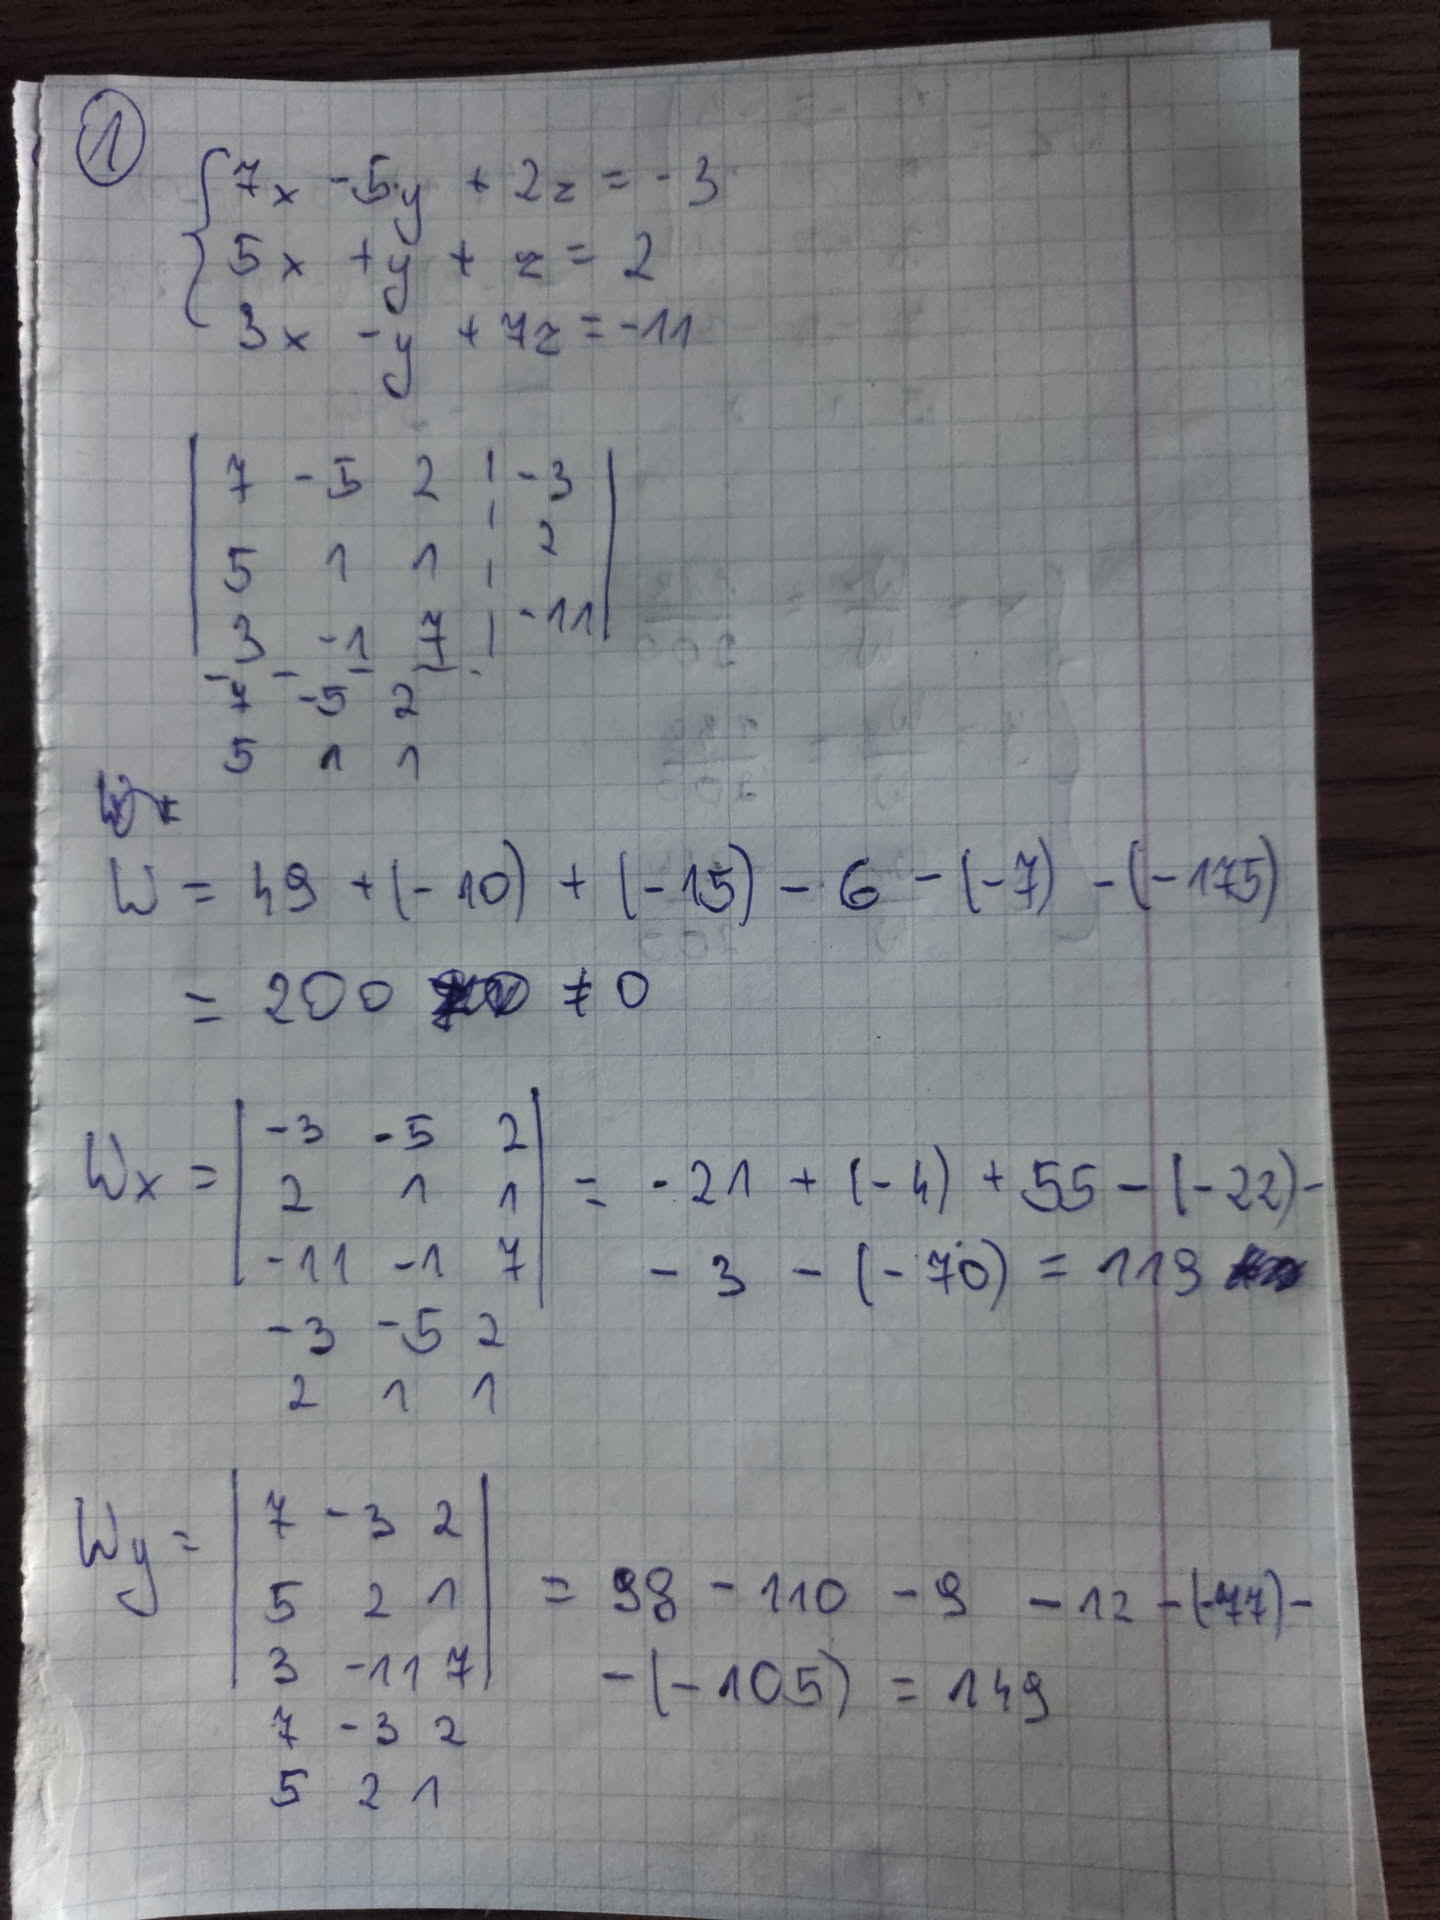 1
7x -5y + 2z = -3
5x +y + z = 2
3x -y + 7z = -11
7 -5 2 -3
5 1 1 2
3 -1 7 -11
7 -5 2
5 1 1
W = 49 + (-10) + (-15) - 6 - (-7) - (-175)
= 200 ≠ 0
Wx = | -3 -5 2 | = -21 + (-4) + 55 - (-22) -
2 1 1
-11 -1 7 - 3 - (-70) = 119
-3 -5 2
2 1 1
Wy = | 7 -3 2 |
5 2 1 = 98 - 110 - 9 - 12 - (-77) -
3 -11 7 - (-105) = 149
7 -3 2
5 2 1